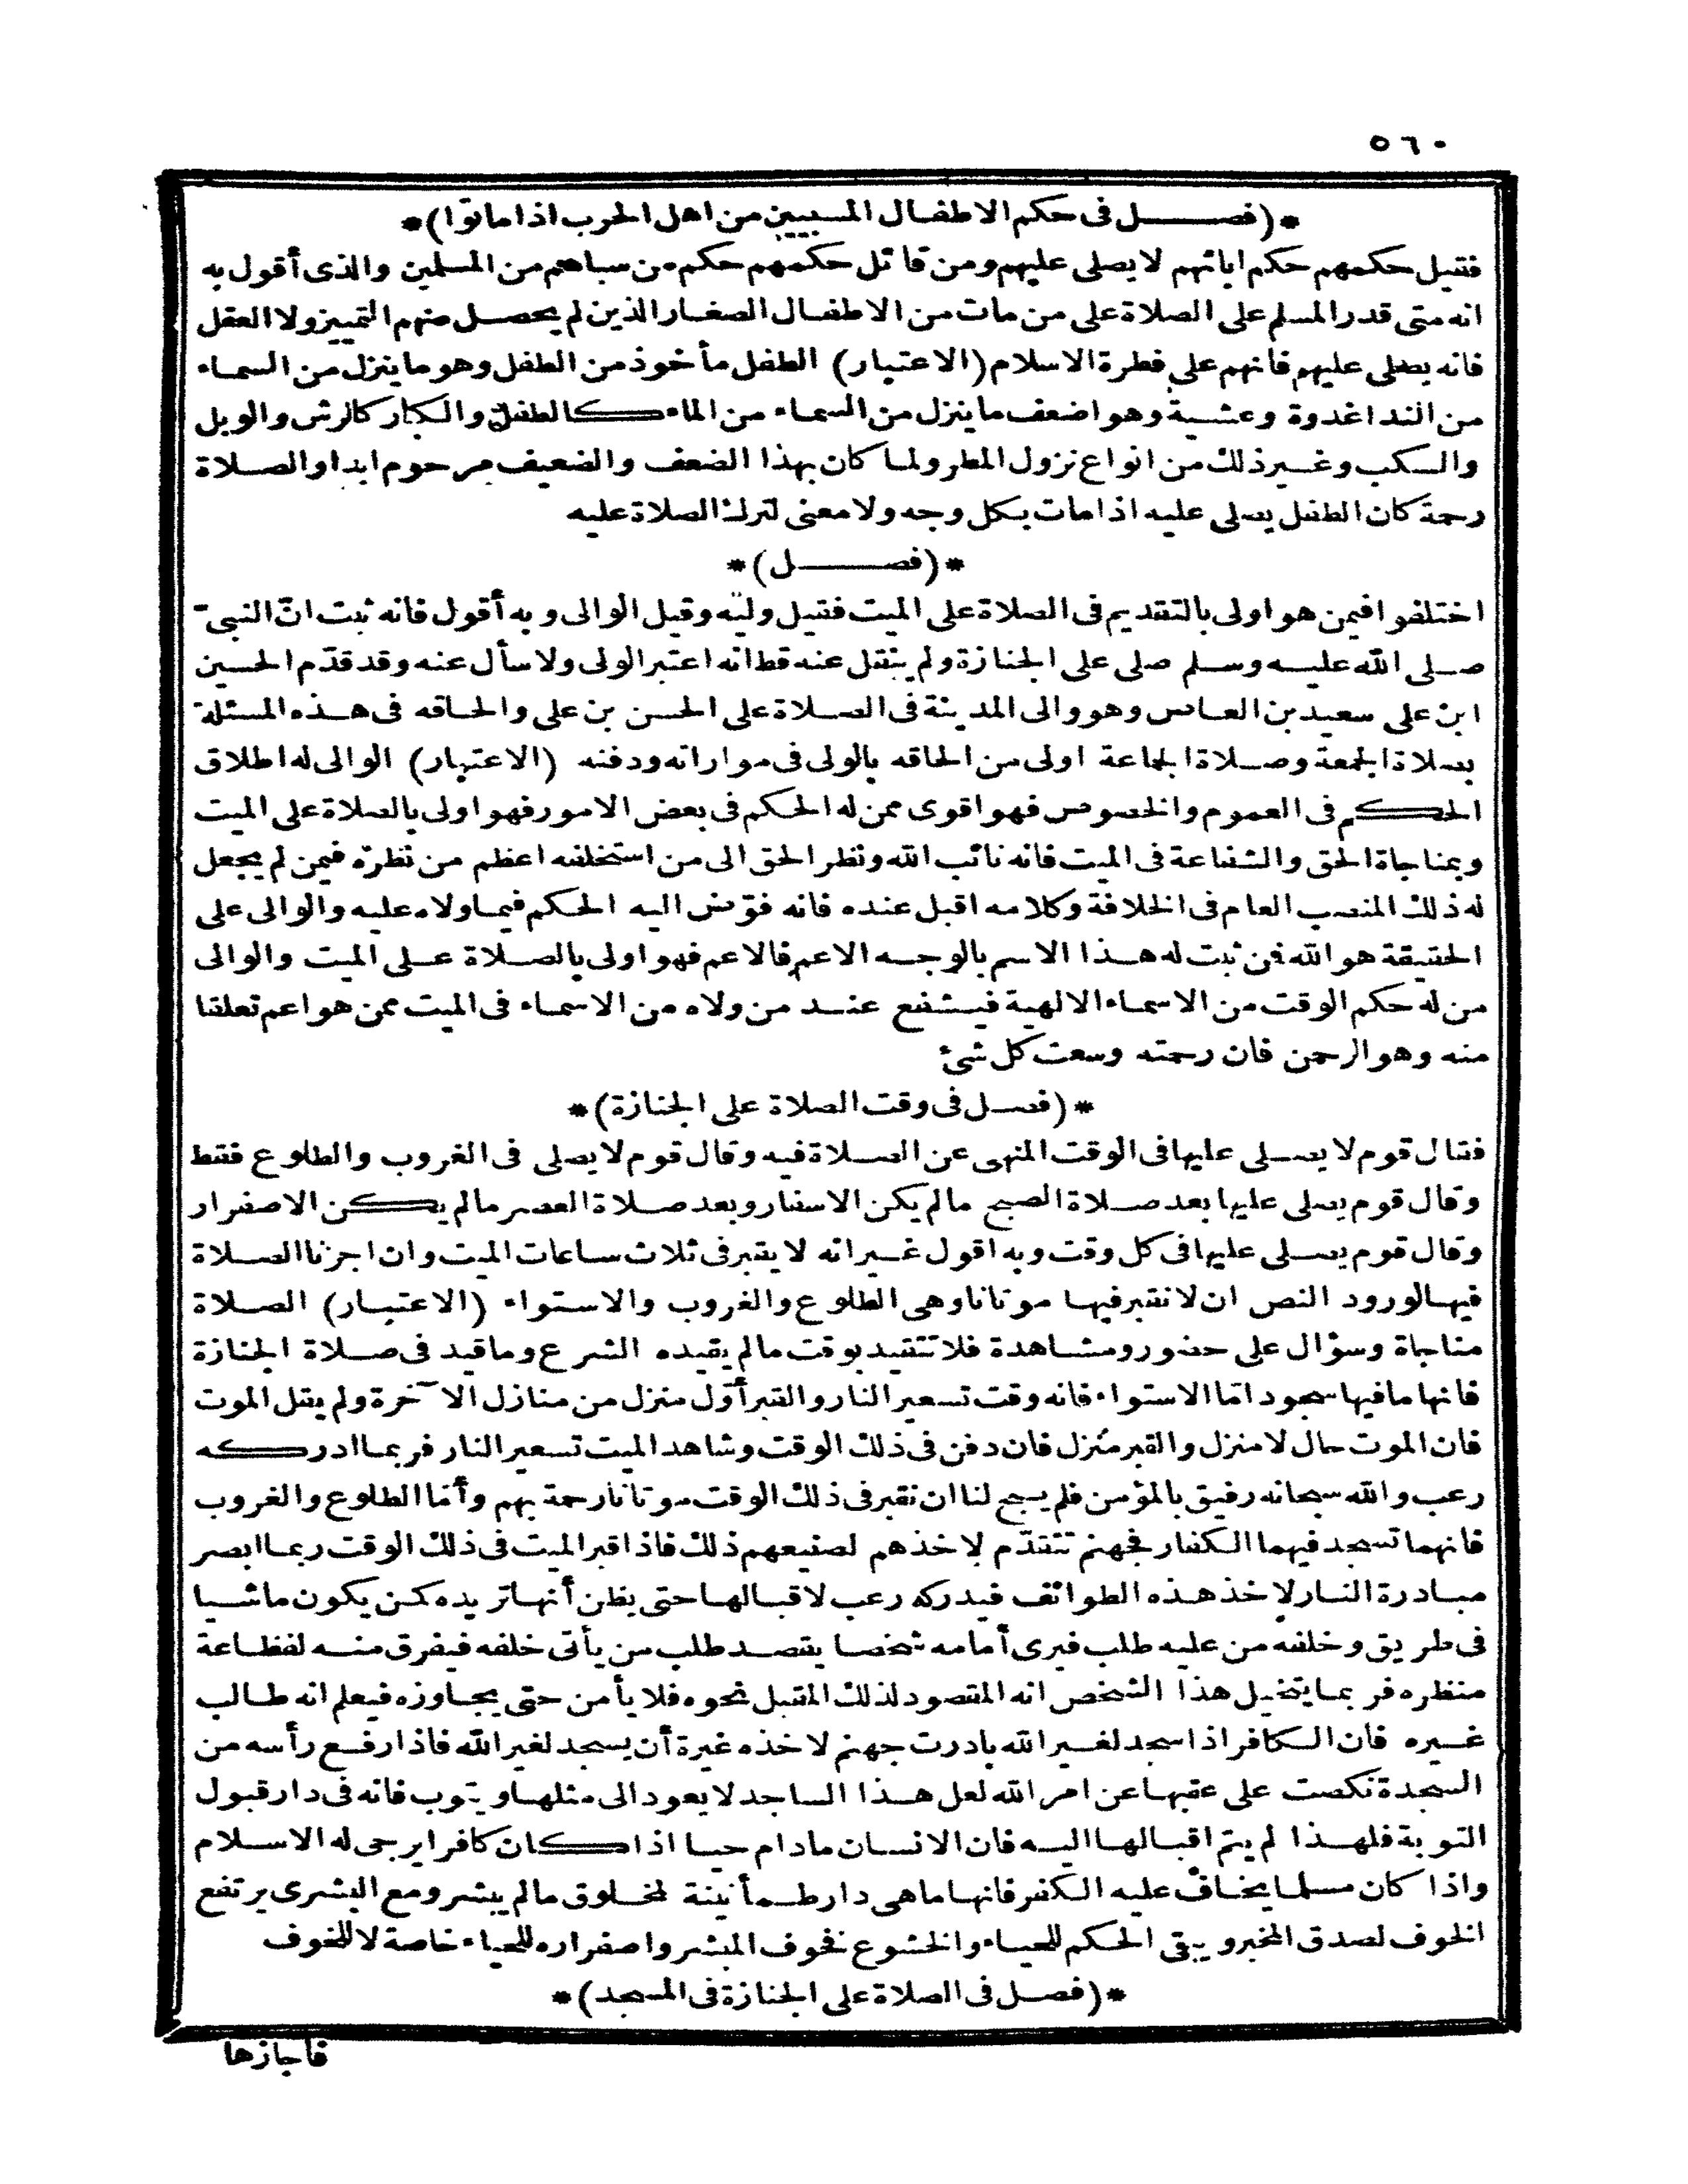 ٥٦٠
*(فصــــل فى حكم الاطفال المسبيين من اهل الحرب اذا ماتوا)*
فقيل حكمهم حكم ابائهم لا يصلى عليهم ومن قائل حكمهم حكم من سباهم من المسلمين والذى أقول به
انه متى قدر المسلم على الصلاة على من مات من الاطفال الصغار الذين لم يحصل منهم التمييز ولا العقل
فانه يصلى عليهم فانهم على فطرة الاسلام (الاعتبار) الطفل مأخوذ من الطفل وهو ما ينزل من السماء
من الندا غدوة وعشية وهو اضعف ما ينزل من السماء من الماء كالطفل والكبار كالرش والوبل
والسكب وغير ذلك من انواع نزول المطر ولما كان بهذا الضعف والضعيف مرحوم ابدا والصلاة
رحمة كان الطفل يصلى عليه اذا مات بكل وجه ولا معنى لترك الصلاة عليه
*(فصــــل)*
اختلفوا فيمن هو اولى بالتقديم فى الصلاة على الميت فقيل وليه وقيل الوالى وبه أقول فانه ثبت انّ النبىّ
صلى الله عليه وسلم صلى على الجنازة ولم ينقل عنه قط انه اعتبر الولى ولا سأل عنه وقد قدّم الحسين
ابن على سعيد بن العاص وهو والى المدينة فى الصلاة على الحسن بن على والحاقه فى هذه المسئلة
بصلاة الجمعة وصلاة الجماعة اولى من الحاقه بالولى فى مواراته ودفنه (الاعتبار) الوالى له اطلاق
الحكم فى العموم والخصوص فهو اقوى ممن له الحكم فى بعض الامور فهو اولى بالصلاة على الميت
وبمناجاة الحق والشفاعة فى الميت فانه نائب الله ونظر الحق الى من استخلفه اعظم من نظره فيمن لم يجعل
له ذلك المنصب العام فى الخلافة وكلامه اقبل عنده فانه فوّض اليه الحكم فيما ولاه عليه والوالى على
الحقيقة هو الله فمن ثبت له هذا الاسم بالوجه الاعم فالاعم فهو اولى بالصلاة على الميت والوالى
من له حكم الوقت من الاسماء الالهية فيشفع عند من ولاه من الاسماء فى الميت ممن هو اعم تعلقا
منه وهو الرحمن فان رحمته وسعت كل شئ
*(فصل فى وقت الصلاة على الجنازة)*
فقال قوم لا يصلى عليها فى الوقت المنهى عن الصلاة فيه وقال قوم لا يصلى فى الغروب والطلوع فقط
وقال قوم يصلى عليها بعد صلاة الصبح ما لم يكن الاسفار وبعد صلاة العصر ما لم يكن الاصفرار
وقال قوم يصلى عليها فى كل وقت وبه اقول غير انه لا يقبر فى ثلاث ساعات الميت وان اجزنا الصلاة
فيها لورود النص ان لا نقبر فيها موتانا وهى الطلوع والغروب والاستواء (الاعتبار) الصلاة
مناجاة وسؤال على حضور ومشاهدة فلا تتقيد بوقت ما لم يقيده الشرع وما قيد فى صلاة الجنازة
فانها ما فيها سجود امّا الاستواء فانه وقت تسعير النار والقبر أوّل منزل من منازل الآخرة ولم يقل الموت
فان الموت حال لا منزل والقبر منزل فان دفن فى ذلك الوقت وشاهد الميت تسعير النار فربما ادركه
رعب والله سبحانه رفيق بالمؤمن فلم يبح لنا ان نقبر فى ذلك الوقت موتانا رحمة بهم وأمّا الطلوع والغروب
فانهما تسجد فيهما الكفار فجهنم تتقدّم لاخذهم لصنيعهم ذلك فاذا قبر الميت فى ذلك الوقت ربما ابصر
مبادرة النار لاخذ هذه الطوائف فيدركه رعب لاقبالها حتى يظن أنها تريده كمن يكون ماشيا
فى طريق وخلفه من عليه طلب فيرى أمامه شخصا يقصد طلب من يأتى خلفه فيفرق منه لفظاعة
منظره فربما يتخيل هذا الشخص انه المقصود لذلك المقبل نحوه فلا يأمن حتى يجاوزه فيعلم انه طالب
غيره فان الكافر اذا سجد لغير الله بادرت جهنم لاخذه غيرة أن يسجد لغير الله فاذا رفع رأسه من
السجدة نكصت على عقبها عن امر الله لعل هذا الساجد لا يعود الى مثلها ويتوب فانه فى دار قبول
التوبة فلهذا لم يتم اقبالها اليه فان الانسان ما دام حيا اذا كان كافرا يرجى له الاسلام
واذا كان مسلما يخاف عليه الكفر فانها ما هى دار طمأنينة لمخلوق ما لم يبشر ومع البشرى يرتفع
الخوف لصدق المخبر ويبقى الحكم للحياء والخشوع فخوف المبشر واصفراره للحياء خاصة لا للخوف
*(فصل فى الصلاة على الجنازة فى المسجد)*
فاجازها